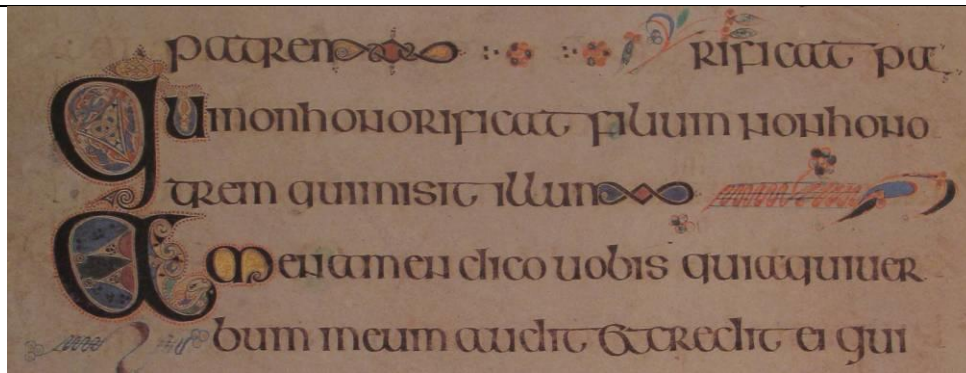 patrem rificat pa
Qui non honorificat filium non hono
trem qui misit illum
Amen amen dico uobis quia qui uer
bum meum audit et credit ei qui